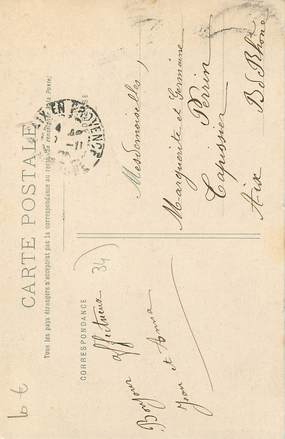 CARTE POSTALE
Tous les pays étrangers n'acceptent pas la correspondance au recto
CORRESPONDANCE
Bonjour affectueux
Jean et Anna
34)
Mesdemoiselles,
Marguerite et Germaine
Perrin
Tapissier
Aix
B. d. Rhône